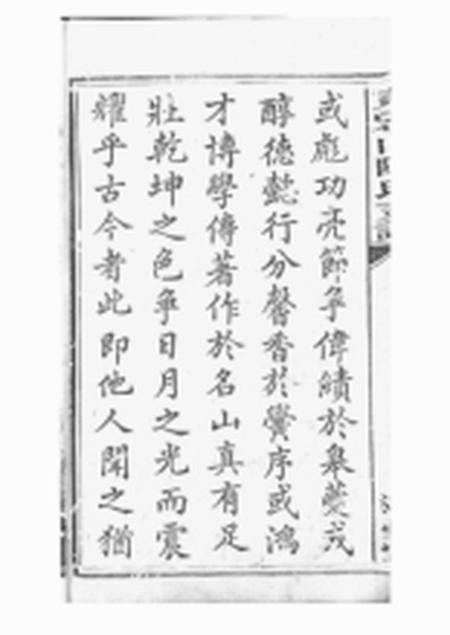 或彪功亮節争偉績於皋夔或
醇德懿行分馨香於黌序或鴻
才博學傳著作於名山真有足
壯乾坤之色争日月之光而震
耀乎古今者此即他人聞之猶